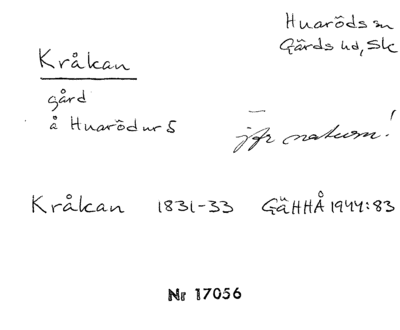 Huaröds sn
Gärds hd, Sk
Kråkan
gård
å Huaröd nr 5
jfr naturn!
Kråkan 1831-33 GäHHÅ 1944:83
Nr 17056